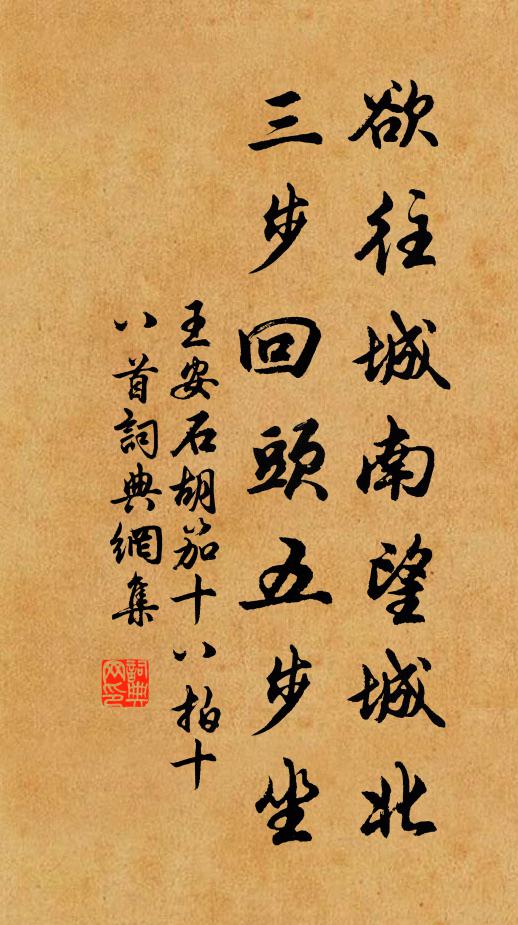 欲往城南望城北
三步回頭五步坐
王安石胡笳十八拍十
八首詞典網集
詞典網印